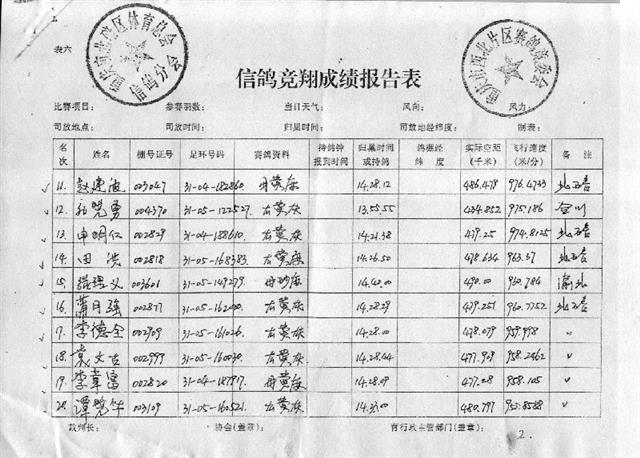 表六
重庆市北碚区体育总会
信鸽分会
重庆市西北片区赛鸽竞委会
信鸽竞翔成绩报告表
比赛项目： 参赛羽数： 当日天气： 风向： 风力：
司放地点： 司放时间： 归巢时间： 司放地经纬度： 制表：
名次 姓名 棚号证号 足环号码 赛鸽资料 持鸽钟报到时间 归巢时间或持鸽 鸽棚经纬度 实际空距(千米) 飞行速度(米/分) 备注
11. 赵建波 003047 31-04-182860 14.28.12 486.478 976.4733 北碚
12. 晓勇 004370 31-05-122527 13.55.55 434.852 975.186 合川
13. 申明仁 002829 31-04-188610 14.21.38 479.25 974.8125 北碚
14. 田洪 002818 31-05-168383 14.26.50 478.634 963.57 北碚
15. 003601 31-05-149279 14.40.00 490.00 960.784 渝北
16. 萧月强 002877 31-05-162000 14.28.29 479.251 960.7752 北碚
17. 李德全 002909 31-05-161026 14.28.00 478.079 959.998 〃
18. 袁文吉 002999 31-05-160030 14.28.44 477.908 958.2462 〃
19. 李章富 002820 31-04-187917 14.28.09 477.28 958.105 〃
20. 谭晓华 003109 31-05-160521 14.33.00 480.797 955.8588 〃
裁判长： 协会(盖章)： 育行政主管部门(盖章)：
2.